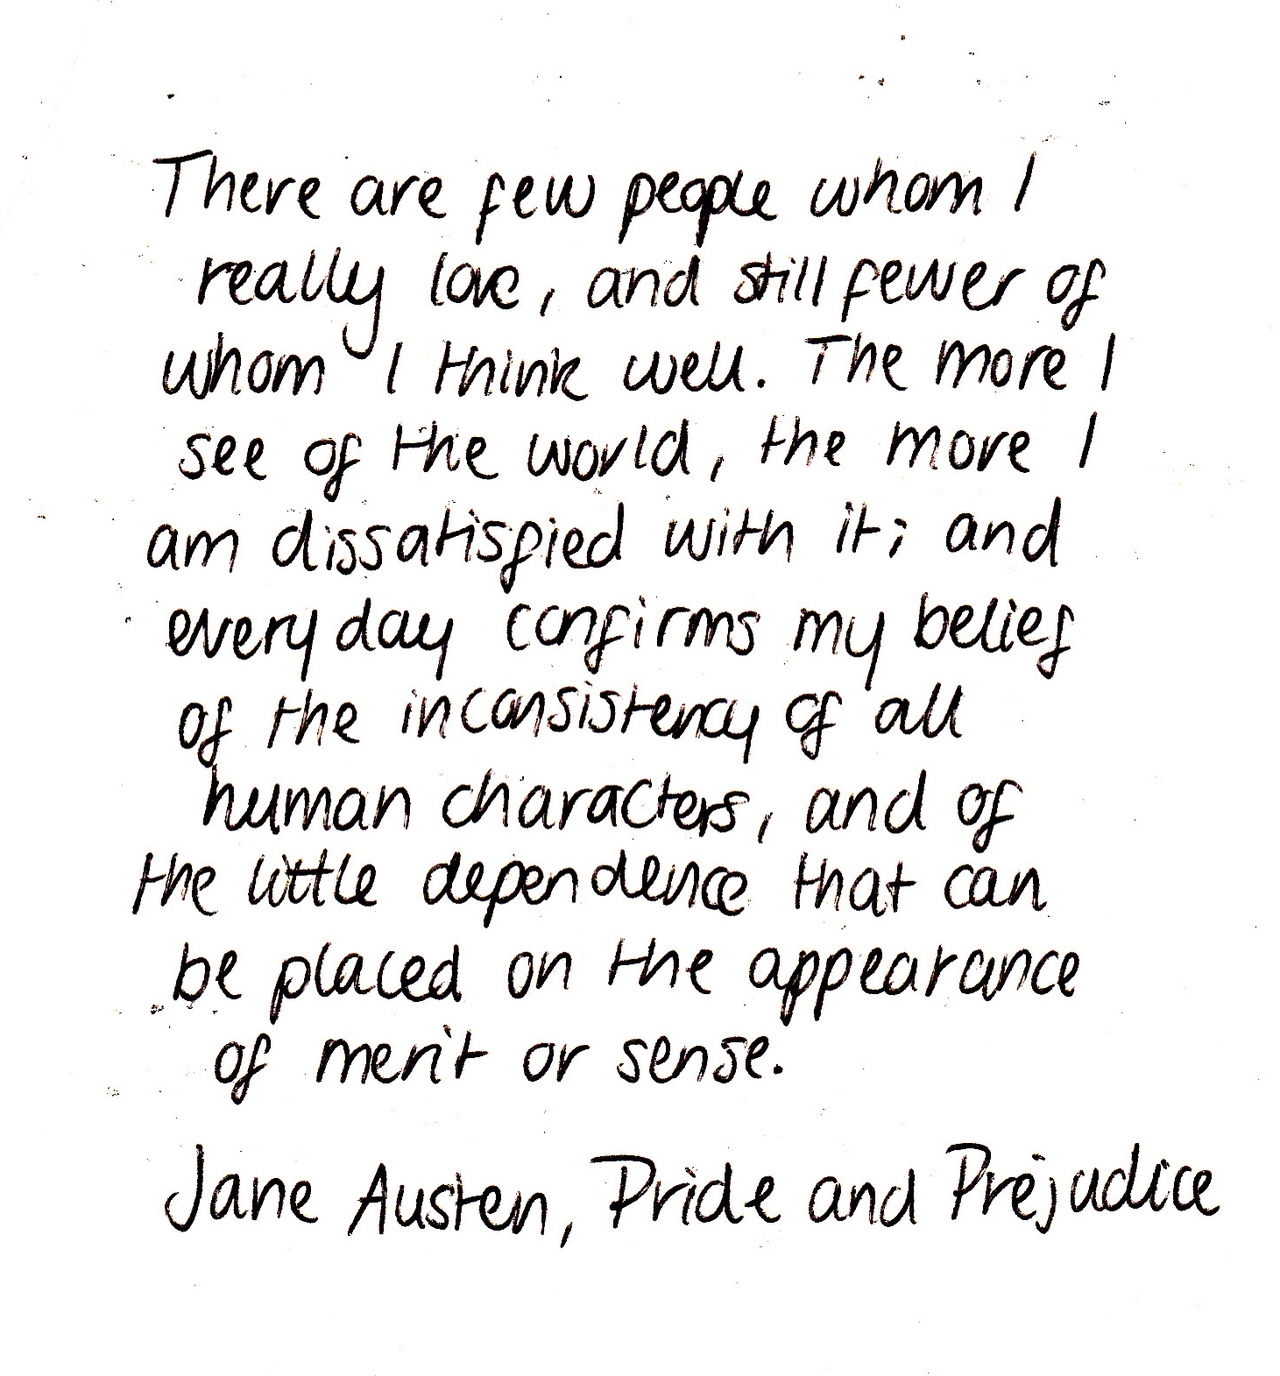 There are few people whom I
really love, and still fewer of
whom I think well. The more I
see of the world, the more I
am dissatisfied with it; and
every day confirms my belief
of the inconsistency of all
human characters, and of
the little dependence that can
be placed on the appearance
of merit or sense.
Jane Austen, Pride and Prejudice